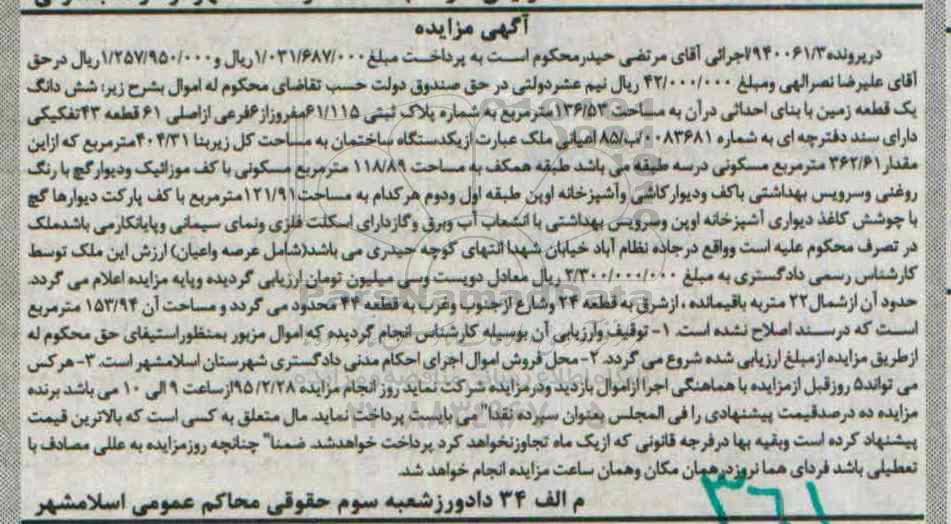 آگهی مزایده
درپرونده ۹۴۰۰۶۱/۳ اجرائی آقای مرتضی حیدرمحکوم است به پرداخت مبلغ ۱/۰۳۱/۶۸۷/۰۰۰ ریال و ۱/۲۵۷/۹۵۰/۰۰۰ ریال درحق
آقای علیرضا نصرالهی ومبلغ ۴۲/۰۰۰/۰۰۰ ریال نیم عشردولتی در حق صندوق دولت حسب تقاضای محکوم له اموال بشرح زیر: شش دانگ
یک قطعه زمین با بنای احداثی درآن به مساحت ۱۳۶/۵۳ مترمربع به شماره پلاک ثبتی ۶۱/۱۱۵ مفروزاز ۶ فرعی ازاصلی ۶۱ قطعه ۴۳ تفکیکی
دارای سند دفترچه ای به شماره ۰۸۳۶۸۱ب/۸۵ اعیانی ملک عبارت ازیکدستگاه ساختمان به مساحت کل زیربنا ۴۰۴/۳۱ مترمربع که ازاین
مقدار ۳۶۲/۶۱ مترمربع مسکونی درسه طبقه می باشد طبقه همکف به مساحت ۱۱۸/۸۹ مترمربع مسکونی با کف موزائیک ودیوارگچ با رنگ
روغنی وسرویس بهداشتی باکف ودیوارکاشی وآشپزخانه اوپن طبقه اول ودوم هرکدام به مساحت ۱۲۱/۹۱ مترمربع با کف پارکت دیوارها گچ
با چوشش کاغذ دیواری آشپزخانه اوپن وسرویس بهداشتی با انشعاب آب وبرق وگازدارای اسکلت فلزی ونمای سیمانی وپایانکارمی باشدملک
در تصرف محکوم علیه است وواقع درجاده نظام آباد خیابان شهدا انتهای کوچه حیدری می باشد(شامل عرصه واعیان) ارزش این ملک توسط
کارشناس رسمی دادگستری به مبلغ ۲/۳۰۰/۰۰۰/۰۰۰ ریال معادل دویست وسی میلیون تومان ارزیابی گردیده وپایه مزایده اعلام می گردد.
حدود آن ازشمال ۲۲ متربه باقیمانده ، ازشرق به قطعه ۲۴ وشارع ازجنوب وغرب به قطعه ۴۴ محدود می گردد و مساحت آن ۱۵۳/۹۴ مترمربع
است که درسند اصلاح نشده است. ۱- توقیف وارزیابی آن بوسیله کارشناس انجام گردیده که اموال مزبور بمنظوراستیفای حق محکوم له
ازطریق مزایده ازمبلغ ارزیابی شده شروع می گردد. ۲- محل فروش اموال اجرای احکام مدنی دادگستری شهرستان اسلامشهر است. ۳- هرکس
می تواند۵ روزقبل ازمزایده با هماهنگی اجرا ازاموال بازدید ودرمزایده شرکت نماید روز انجام مزایده ۹۵/۲/۲۸ ازساعت ۹ الی ۱۰ می باشد برنده
مزایده ده درصدقیمت پیشنهادی را فی المجلس بعنوان سپرده نقدا" می بایست پرداخت نماید. مال متعلق به کسی است که بالاترین قیمت
پیشنهاد کرده است وبقیه بها درفرجه قانونی که ازیک ماه تجاوزنخواهد کرد پرداخت خواهدشد. ضمنا" چنانچه روزمزایده به عللی مصادف با
تعطیلی باشد فردای هما نروزدرهمان مکان وهمان ساعت مزایده انجام خواهد شد.
م الف ۳۴ دادورزشعبه سوم حقوقی محاکم عمومی اسلامشهر
۳۶۱